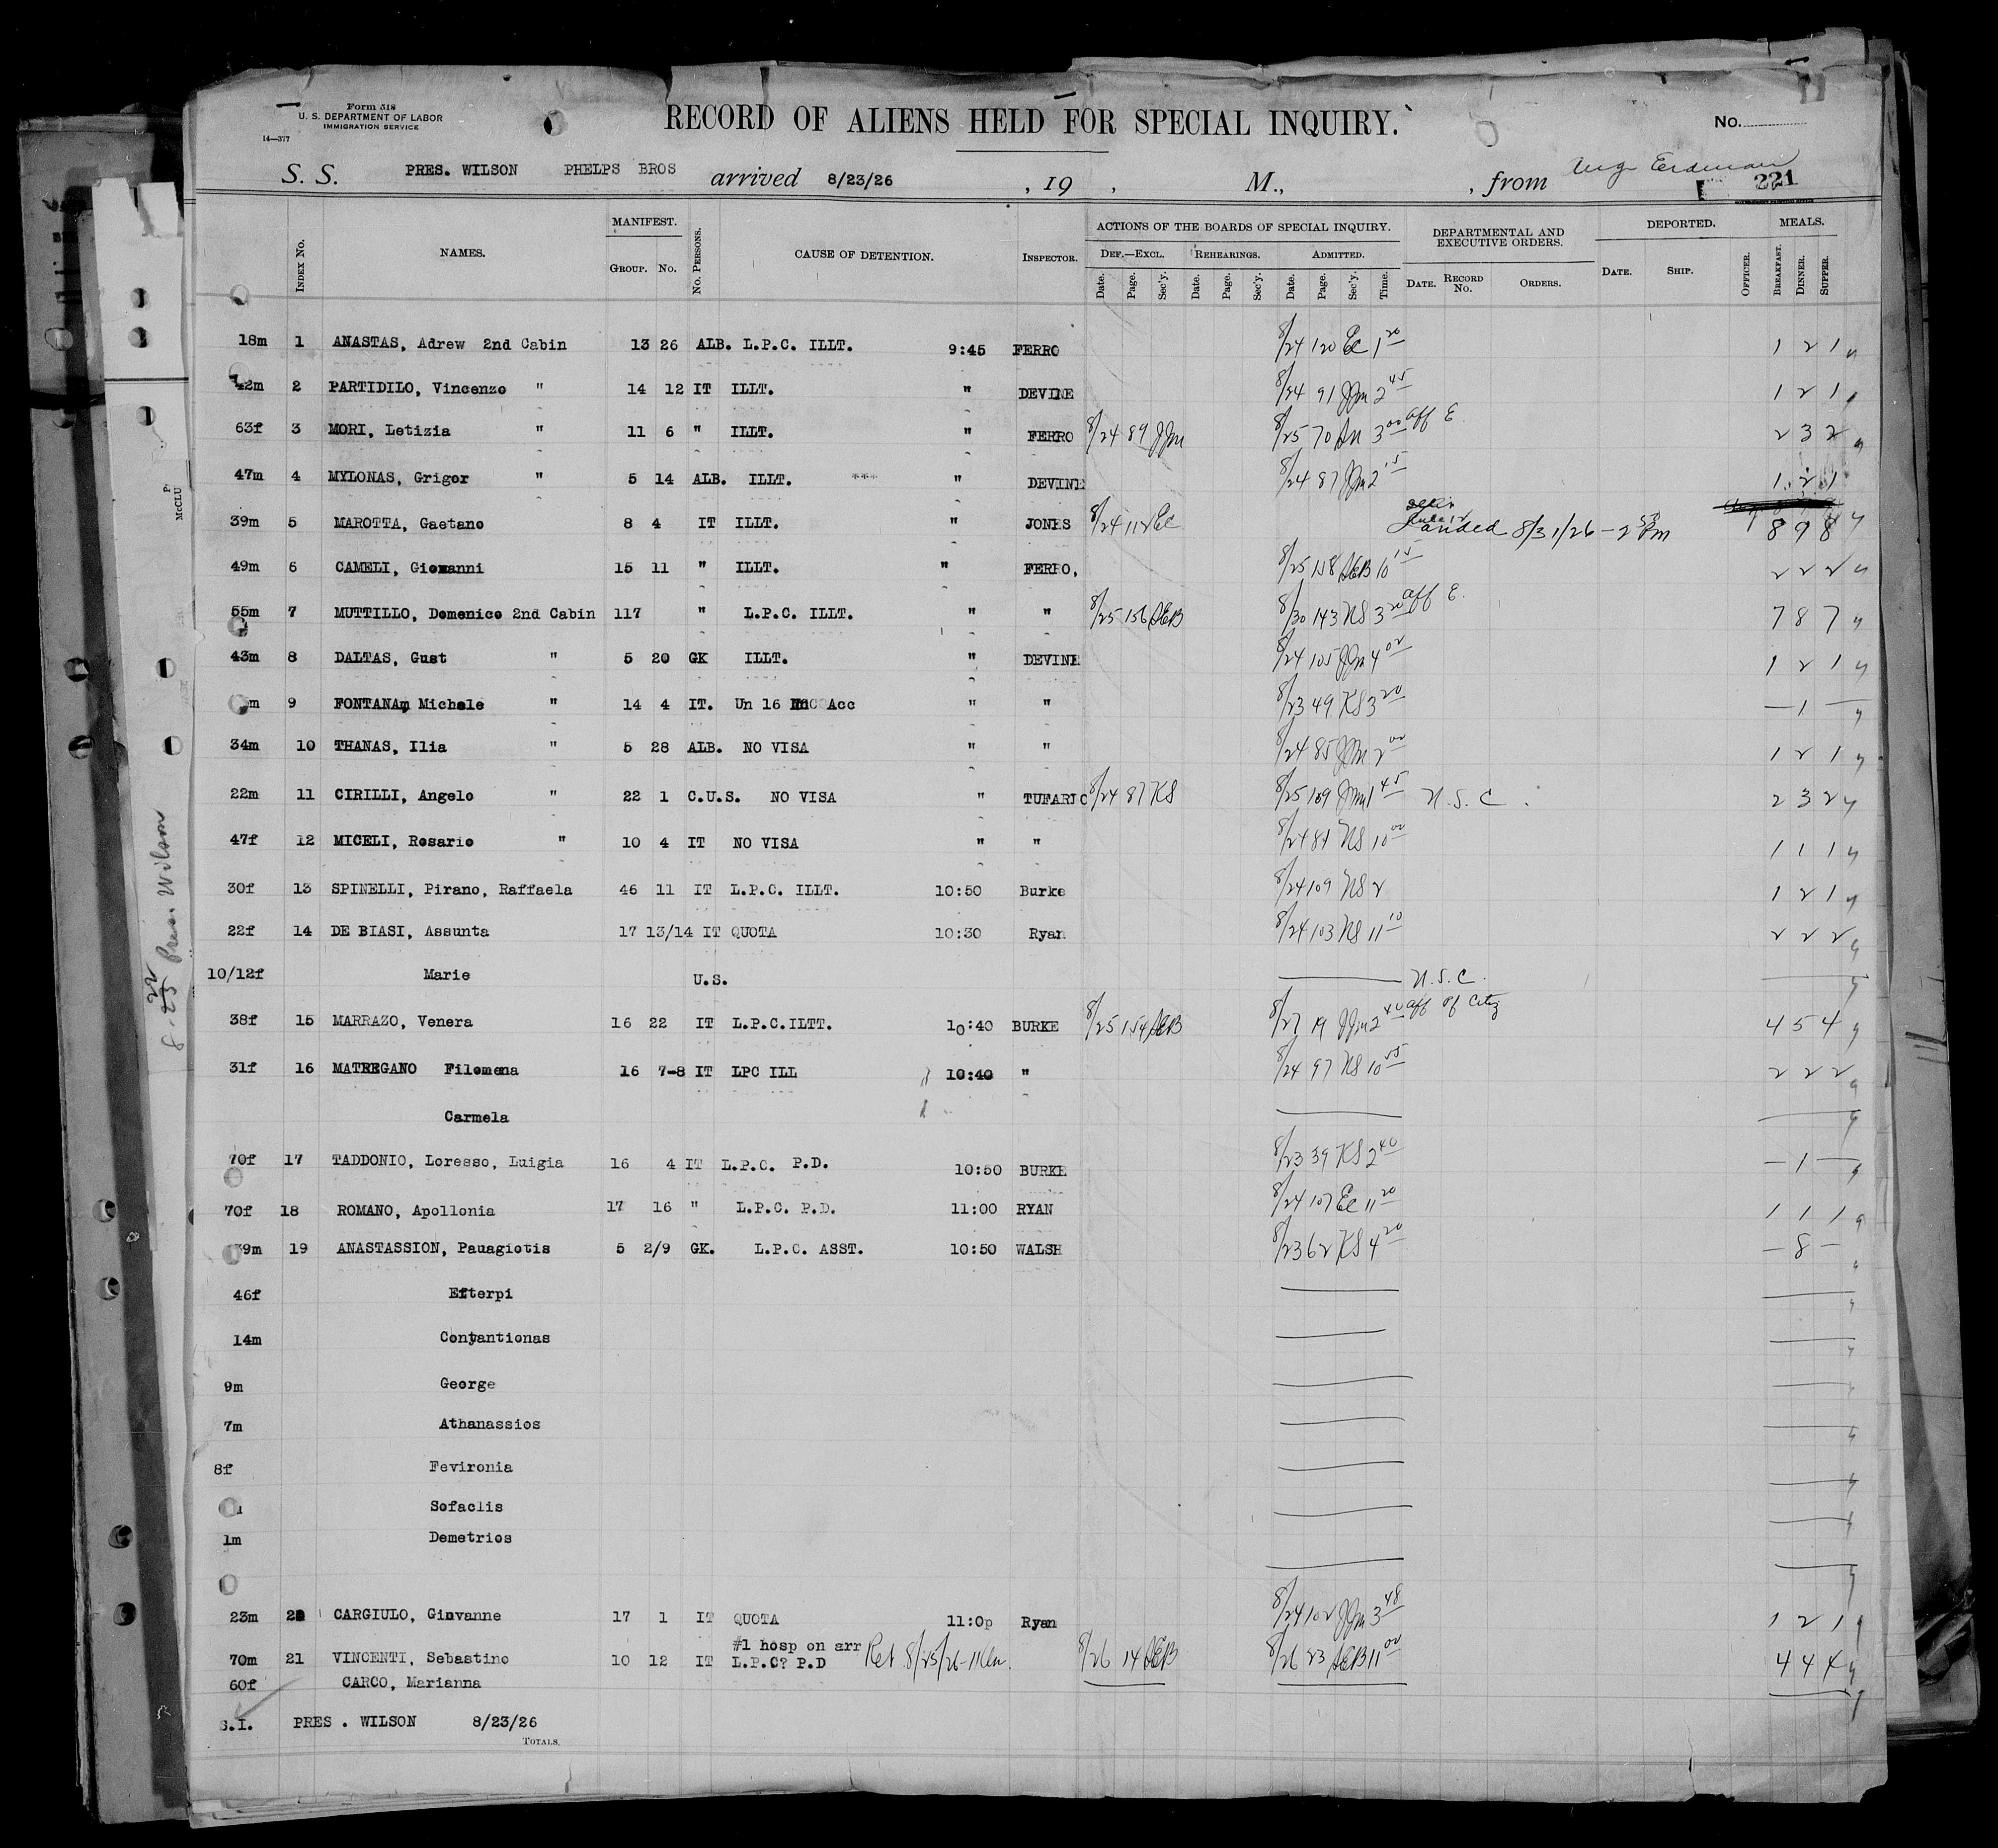 Form 518
U. S. DEPARTMENT OF LABOR
IMMIGRATION SERVICE
14—377
RECORD OF ALIENS HELD FOR SPECIAL INQUIRY.
No.
S. S. PRES. WILSON PHELPS BROS arrived 8/23/26 , 19 , M., , from
221
INDEX No. NAMES. MANIFEST. GROUP. No. No. PERSONS. CAUSE OF DETENTION. INSPECTOR. ACTIONS OF THE BOARDS OF SPECIAL INQUIRY. DEPARTMENTAL AND EXECUTIVE ORDERS. DEPORTED. MEALS.
DEF.—EXCL. REHEARINGS. ADMITTED.
Date. Page. Sec'y. Date. Page. Sec'y. Date. Page. Sec'y. Time. DATE. RECORD No. ORDERS. DATE. SHIP. OFFICER. BREAKFAST. DINNER. SUPPER.
18m 1 ANASTAS, Adrew 2nd Cabin 13 26 ALB. L.P.C. ILLT. 9:45 FERRO 8/24 120 Ec 1 20 1 2 1
42m 2 PARTIDILO, Vincenzo " 14 12 IT ILLT. " DEVINE 8/24 91 JJM 2 45 1 2 1
63f 3 MORI, Letizia " 11 6 " ILLT. " FERRO 8/24 89 JJM 8/25 70 3 00 aff E 2 3 2
47m 4 MYLONAS, Grigor " 5 14 ALB. ILLT. *** " DEVINE 8/24 87 JJM 2 15 1 2 1
39m 5 MAROTTA, Gaetano 8 4 IT ILLT. " JONES 8/24 112 Ec Landed 8/31/26 - 2 50 Pm 8 9 8
49m 6 CAMELI, Giovanni 15 11 " ILLT. " FERRO, 8/25 158 AEB 10 15 2 2 2
55m 7 MUTTILLO, Domenico 2nd Cabin 117 " L.P.C. ILLT. " " 8/25 156 AEB 8/30 143 NS 3 20 aff E. 7 8 7
43m 8 DALTAS, Gust " 5 20 GK ILLT. " DEVINE 8/24 105 JJM 4 02 1 2 1
m 9 FONTANA, Michele " 14 4 IT. Un 16 Acc " " 8/23 49 KS 3 20 — 1 —
34m 10 THANAS, Ilia " 5 28 ALB. NO VISA " " 8/24 85 JJM 2 00 1 2 1
22m 11 CIRILLI, Angelo " 22 1 C.U.S. NO VISA " TUFARIO 8/24 87 KS 8/25 109 JJM 1 45 U.S.C. 2 3 2
47f 12 MICELI, Rosario " 10 4 IT NO VISA " " 8/24 84 NS 10 00 1 1 1
30f 13 SPINELLI, Pirano, Raffaela 46 11 IT L.P.C. ILLT. 10:50 Burke 8/24 109 NS 2 1 2 1
22f 14 DE BIASI, Assunta 17 13/14 IT QUOTA 10:30 Ryan 8/24 103 NS 11 10 2 2 2
10/12f Marie U.S. U.S.C.
38f 15 MARRAZO, Venera 16 22 IT L.P.C.ILTT. 10:40 BURKE 8/25 154 AEB 8/27 19 JJM 2 40 aff of Citz 4 5 4
31f 16 MATREGANO Filomena 16 7-8 IT LPC ILL 10:40 " 8/24 97 NS 10 55 2 2 2
Carmela
70f 17 TADDONIO, Loresso, Luigia 16 4 IT L.P.C. P.D. 10:50 BURKE 8/23 39 KS 2 40 — 1 —
70f 18 ROMANO, Apollonia 17 16 " L.P.C. P.D. 11:00 RYAN 8/24 107 Ec 11 20 1 1 1
39m 19 ANASTASSION, Pauagiotis 5 2/9 GK. L.P.C. ASST. 10:50 WALSH 8/23 62 KS 4 20 — 8 —
46f Efterpi
14m Contantionas
9m George
7m Athanassios
8f Fevironia
Sofaclis
1m Demetrios
23m 20 CARGIULO, Giovanne 17 1 IT QUOTA 11:0p Ryan 8/24 102 JJM 3 48 1 2 1
#1 hosp on arr
70m 21 VINCENTI, Sebastino 10 12 IT L.P.C? P.D Ret 8/25/26 - 11 am. 8/26 14 AEB 8/26 23 AEB 11 00 4 4 4
60f CARCO, Marianna
S.I. PRES . WILSON 8/23/26
TOTALS.
8-22 Pres. Wilson
McCLU